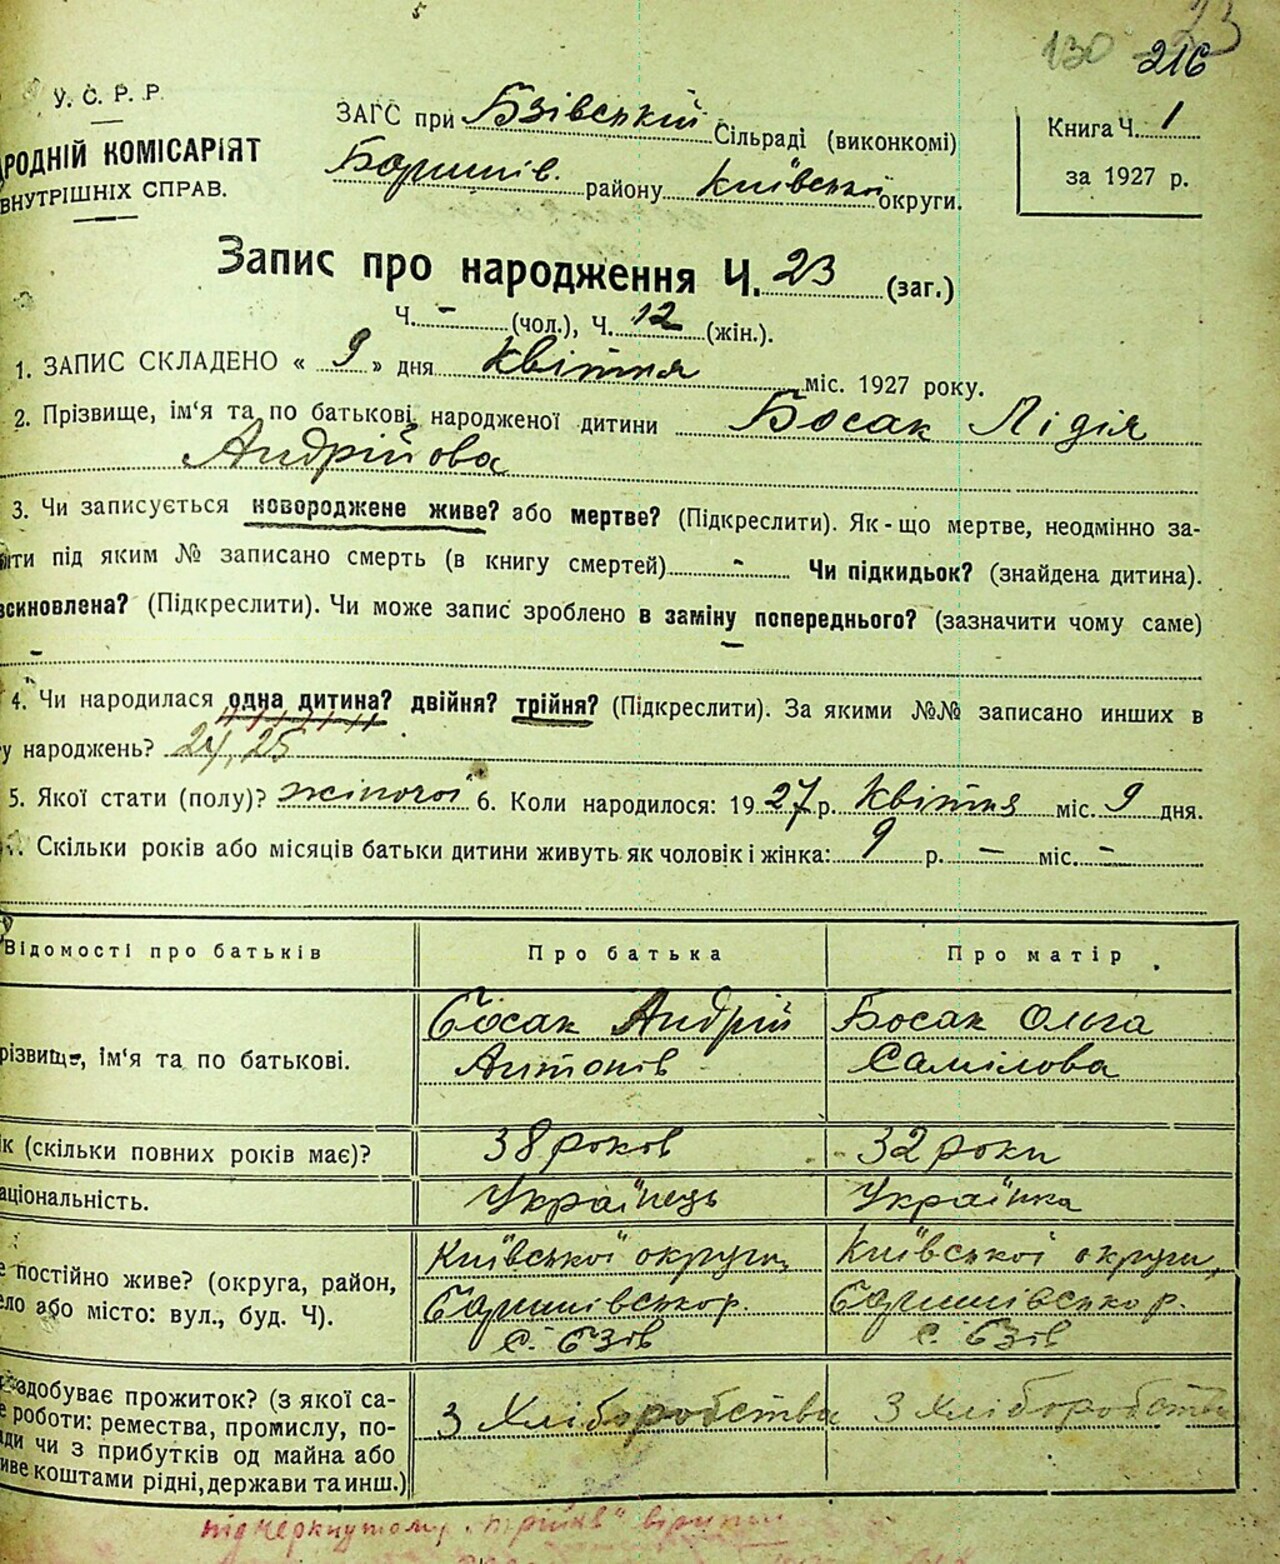 23
130 216
У. С. Р. Р.
РОДНІЙ КОМІСАРІЯТ
ВНУТРІШНІХ СПРАВ.
ЗАГС при Бзівській Сільраді (виконкомі)
Баришів. району Київської округи.
Книга Ч. 1
за 1927 р.
Запис про народження Ч. 23 (заг.)
Ч. - (чол.), Ч. 12 (жін.).
1. ЗАПИС СКЛАДЕНО « 9 » дня квітня міс. 1927 року.
2. Прізвище, ім'я та по батькові народженої дитини Босак Лідія
Андрійова
3. Чи записується новороджене живе? або мертве? (Підкреслити). Як-що мертве, неодмінно за-
ити під яким № записано смерть (в книгу смертей) - Чи підкидьок? (знайдена дитина).
всиновлена? (Підкреслити). Чи може запис зроблено в заміну попереднього? (зазначити чому саме)
-
4. Чи народилася одна дитина? двійня? трійня? (Підкреслити). За якими №№ записано инших в
у народжень? 24, 25
5. Якої стати (полу)? жіночої 6. Коли народилося: 1927 р. Квітня міс. 9 дня.
Скільки років або місяців батьки дитини живуть як чоловік і жінка: 9 р. - міс. -
Відомості про батьків Про батька Про матір
різвище, ім'я та по батькові. Босак Андрій Босак Ольга
Антонів Самілова
ік (скільки повних років має)? 38 років 32 роки
аціональність. Українець Українка
е постійно живе? (округа, район, Київської округи, Київської округи,
ело або місто: вул., буд. Ч). Баришівсько р. Баришівсько р.
с. Бзів с. Бзів
здобуває прожиток? (з якої са-
е роботи: ремества, промислу, по- З Хліборобства З Хліборобства
ади чи з прибутків од майна або
иве коштами рідні, держави та инш.)
підчеркнутому „трійнѣ" вірити